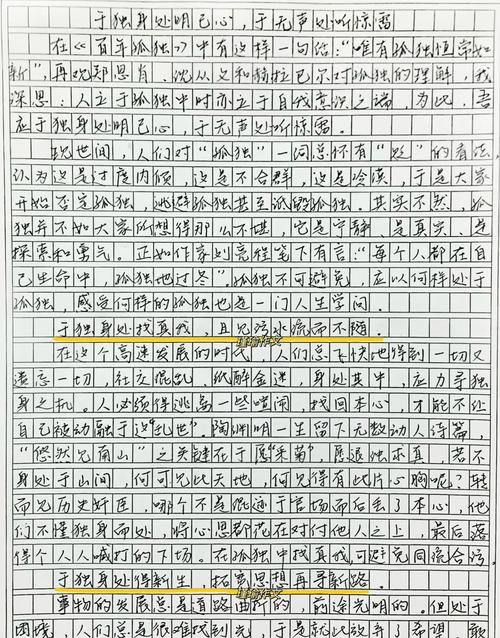 于独身处明己心，于无声处听惊雷
在《百年孤独》中有这样一句话：“唯有孤独恒常如
新”，再观郑思肖、沈从文和荷拉巴尔对孤独的理解，我
深思：人立于孤独中时亦立于自我意识之端，为此，吾
应于独身处明己心，于无声处听惊雷。
观世间，人们对“孤独”一词总怀有“贬”的看法，
认为这是过度内倾，这是不合群，这是冷漠，于是大家
开始否定孤独，逃避孤独甚至诋毁孤独。其实不然，孤
独并不如大家所想得那么不堪，它是宁静、是真实、是
探索和勇气。正如作家刘亮程笔下有言：“每个人都在自
己生命中，孤独地过冬”。孤独不可避免，应以何样处于
孤独，感受何样的孤独也是一门人生学问。
于独身处找真我，且见污水流而不随。
在这个高速发展的时代，人们总飞快地得到一切又
遗忘一切，社交混乱、纸醉金迷，身处其中，应力寻独
身之机。人必须得逃离一些喧闹，找回本心，才能不让
自己被动融于这“乱世”。陶渊明一生留下无数动人诗篇，
“悠然见南山”之关键在于愿“采菊”，愿退独求真，若不
身处于山间，何可见此天地，何见得有此片心胸呢？转
而见历史奸臣，哪个不是混迹于官场而后丢了本心，他
们不懂独身而处，将心思都花在对付他人之上，最后落
得个人人喊打的下场。在孤独中找真我，可避免同流合污。
于独身处得新生，拓宽思想再寻新路。
事物的发展总是道路曲折的，前途光明的。但处于
困境，人们总是很难找到光，于是就此放弃了希望，歇